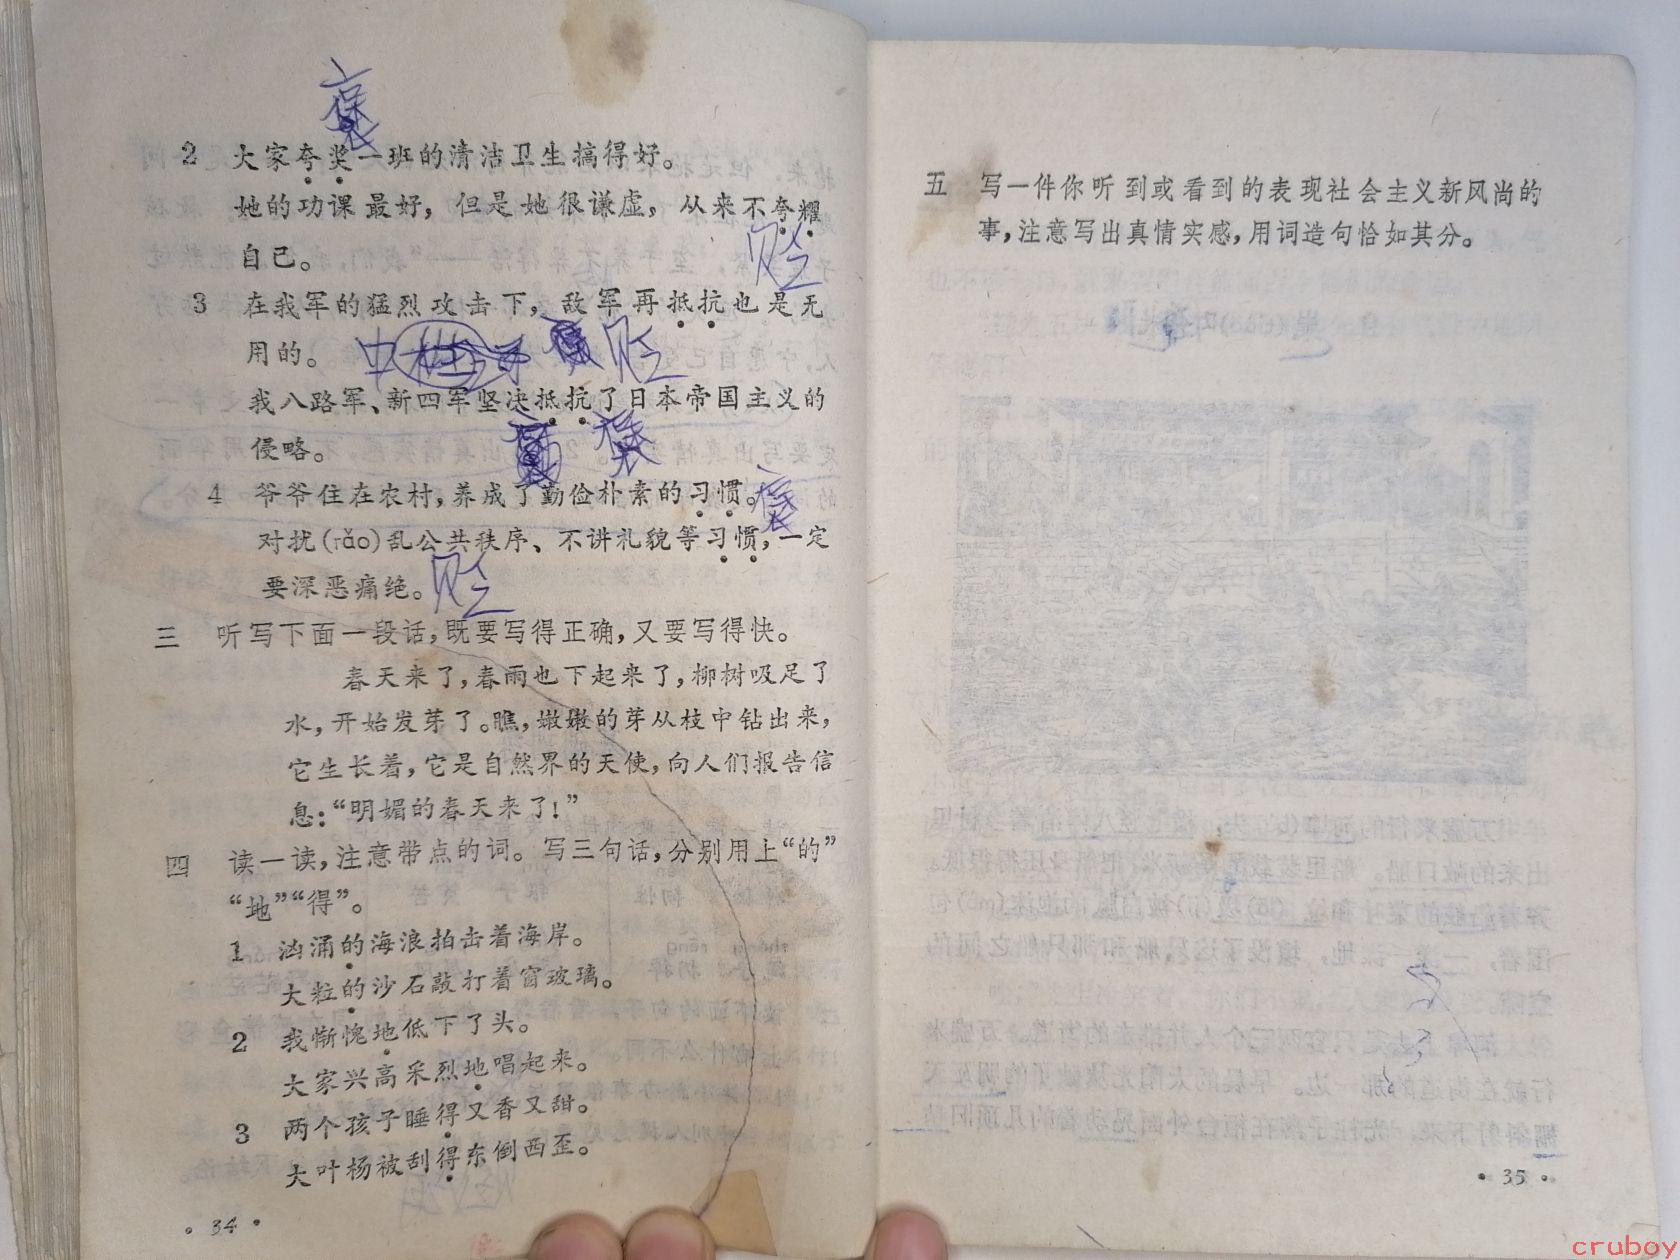 褒
2 大家夸奖一班的清洁卫生搞得好。
她的功课最好，但是她很谦虚，从来不夸耀
自己。
贬
3 在我军的猛烈攻击下，敌军再抵抗也是无
用的。
中 贬
我八路军、新四军坚决抵抗了日本帝国主义的
侵略。
褒
4 爷爷住在农村，养成了勤俭朴素的习惯。
褒
对扰(rǎo)乱公共秩序、不讲礼貌等习惯，一定
要深恶痛绝。
贬
三 听写下面一段话，既要写得正确，又要写得快。
春天来了，春雨也下起来了，柳树吸足了
水，开始发芽了。瞧，嫩嫩的芽从枝中钻出来，
它生长着，它是自然界的天使，向人们报告信
息：“明媚的春天来了！”
四 读一读，注意带点的词。写三句话，分别用上“的”
“地”“得”。
1 汹涌的海浪拍击着海岸。
大粒的沙石敲打着窗玻璃。
2 我惭愧地低下了头。
大家兴高采烈地唱起来。
3 两个孩子睡得又香又甜。
大叶杨被刮得东倒西歪。
• 34 •
五 写一件你听到或看到的表现社会主义新风尚的
事，注意写出真情实感，用词造句恰如其分。
• 35 •
cruboy